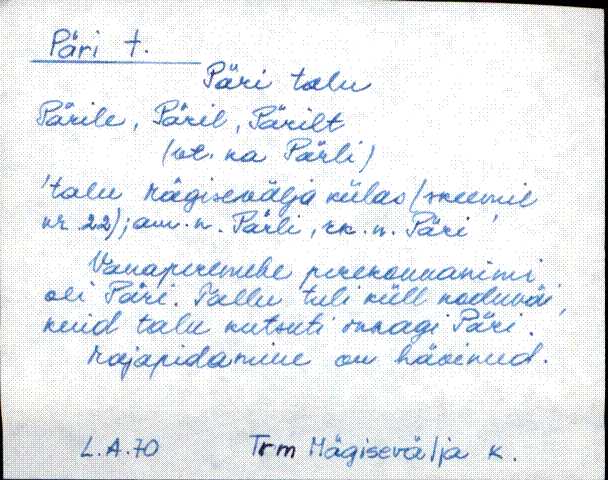 Päri t.
Päri talu
Pärile, Päril, Pärilt
(vt. ka Pärli)
talu Mägisevälja külas (skeemil
nr. 22); am. n. Pärli, rk. n. Päri
Vanaperemehe perekonnanimi
oli Päri. Tallu tuli küll koduväi,
kuid talu kutsuti ikkagi Päri.
Majapidamine on hävinud.
L.A.70 Trm Mägisevälja k.